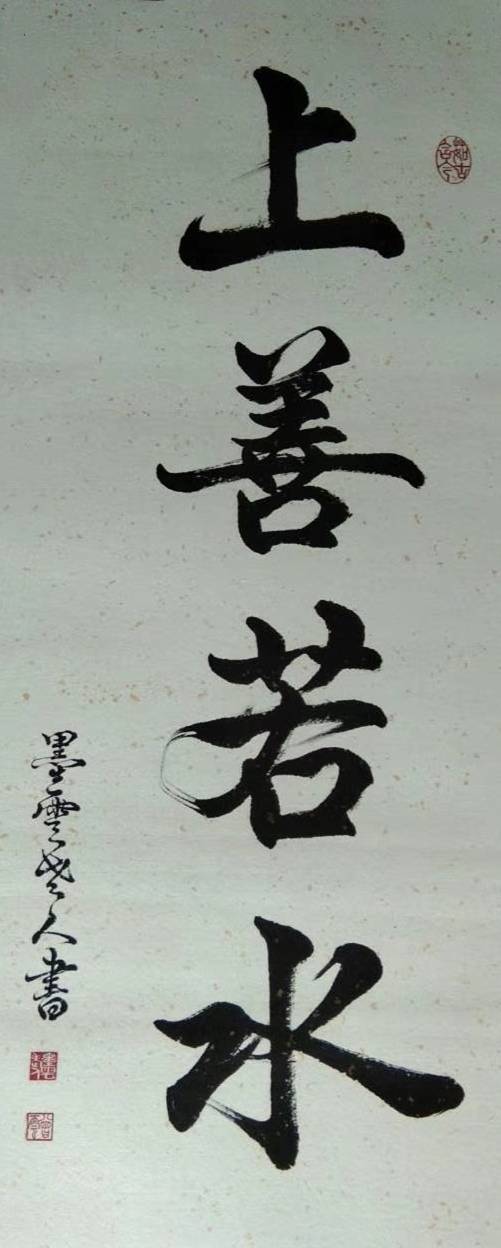 上善若水
墨雲老人書